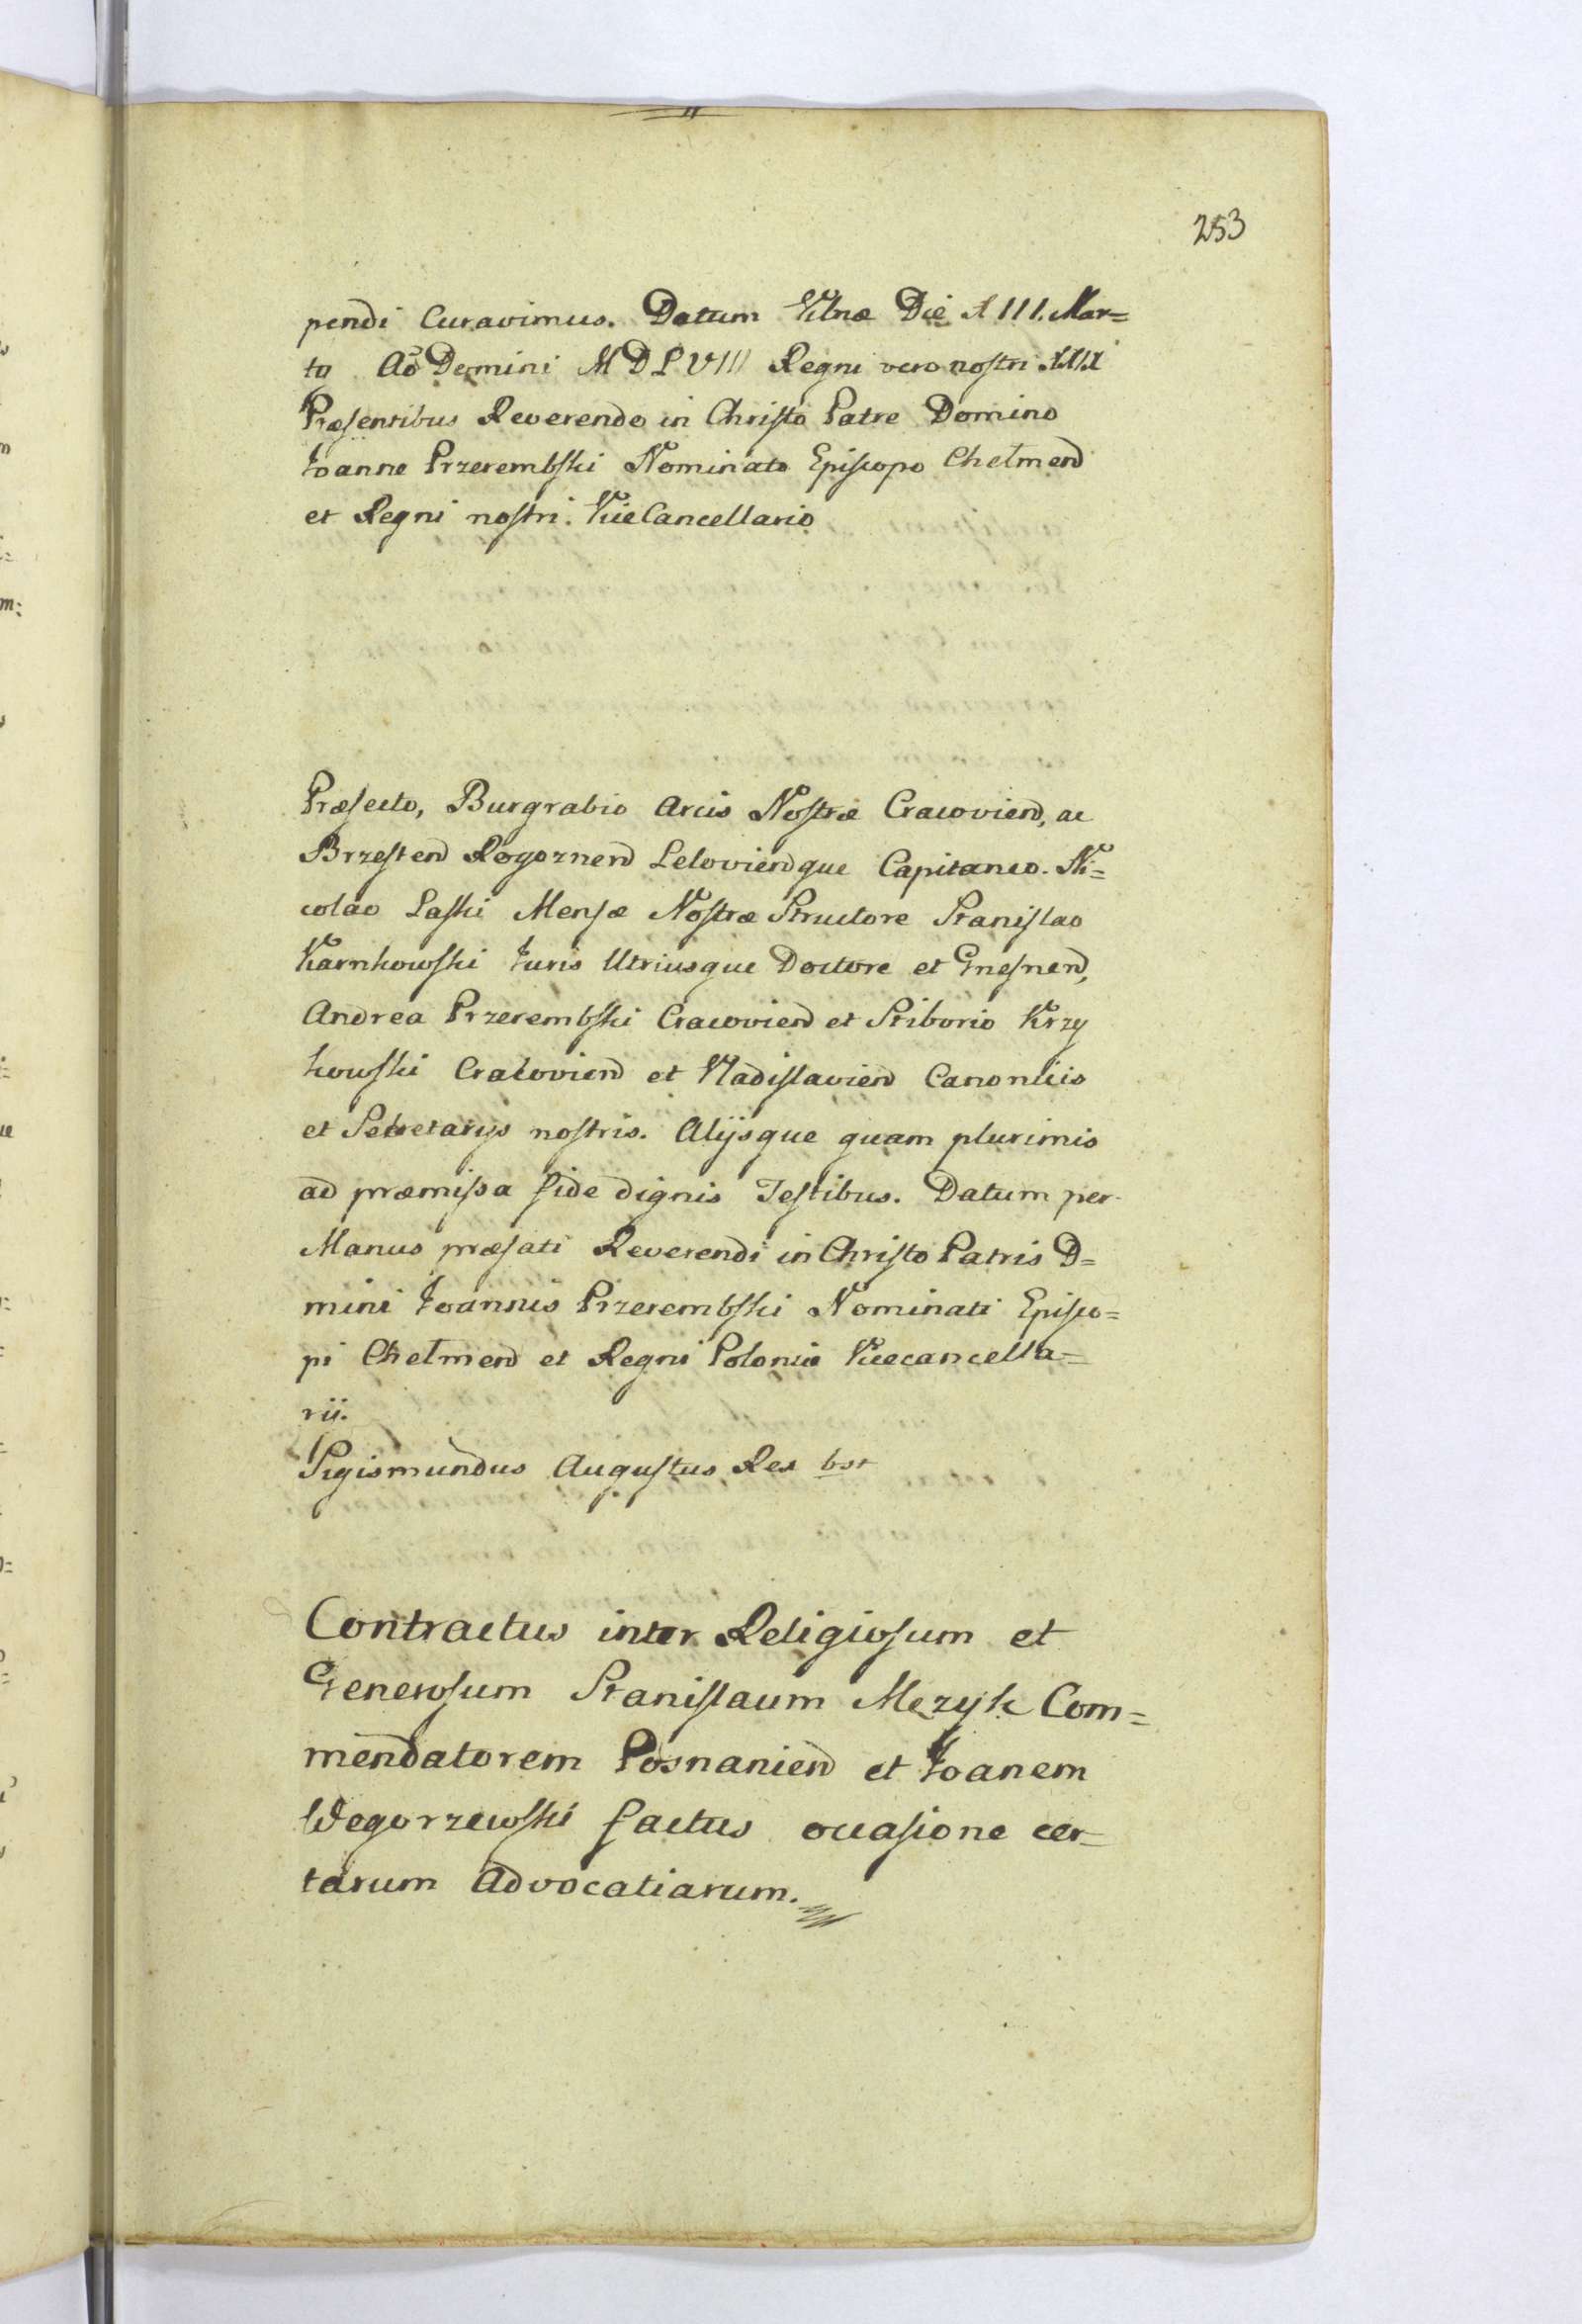 253
pendi Curavimus. Datum Vilnæ Die XIII. Mar=
tij Aō Domini MDLVIII Regni vero nostri XXIX
Præsentibus Reverendo in Christo Patre Domino
Joanne Przerembski Nominato Episcopo Chelmend
et Regni nostri. ViceCancellario
Præfecto, Burgrabio Arcis Nostræ Cracoviend, ac
Brzestend Rogoznend Leloviendque Capitaneo. Ni=
colao Laski Mensæ Nostræ Structore Stanislao
Karnkowski Juris Utriusque Doctore et Gnesnend,
Andrea Przerembski Cracoviend et Stiborio Krzy
kowski Cracoviend et Vladislaviend Canonicis
et Secretarijs nostris. Alijsque quam plurimis
ad præmissa fide dignis Testibus. Datum per
Manus præfati Reverendi in Christo Patris D=
mini Joannis Przerembski Nominati Episco=
pi Chelmend et Regni Poloniæ Vicecancella=
rii.
Sigismundus Augustus Rex
Contractus inter Religiosum et
Generosum Stanislaum Mezyk Com=
mendatorem Posnaniend et Joanem
Wegorzewski factus occasione cer=
tarum Advocatiarum.